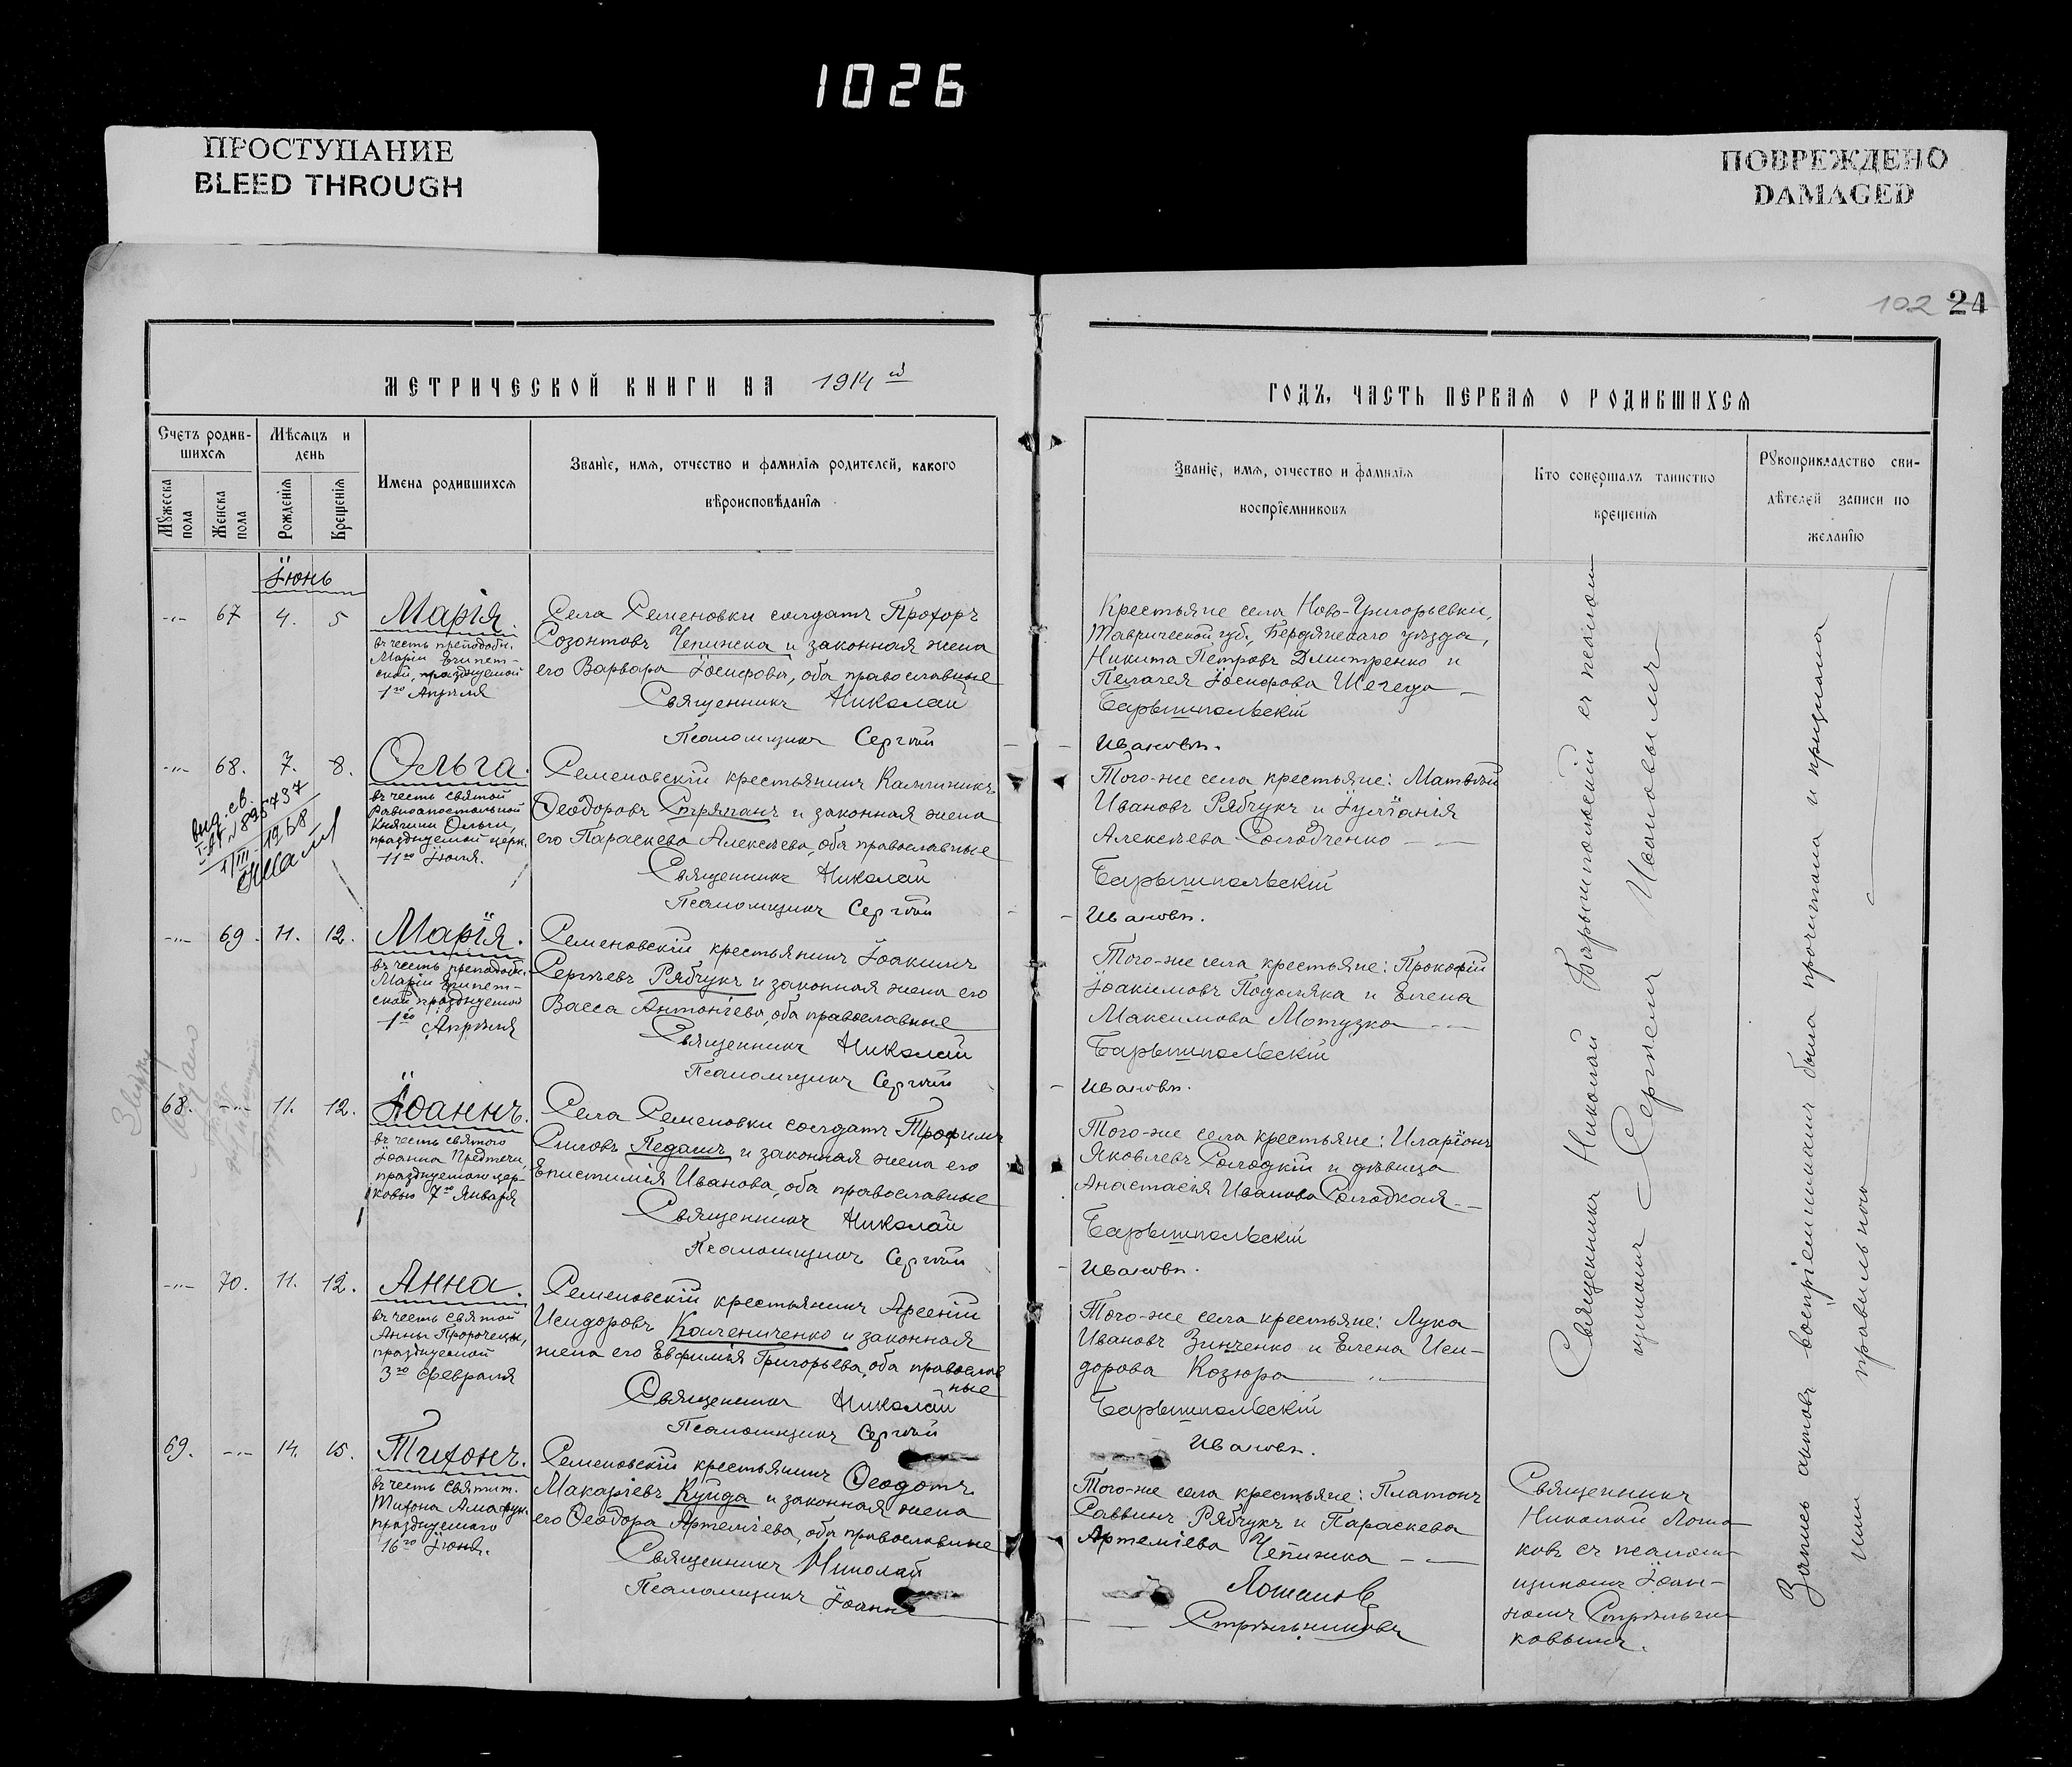 1026
ПРОСТУПАНИЕ
BLEED THROUGH
ПОВРЕЖДЕНО
DAMAGED
102 24
МЕТРИЧЕСКОЙ КНИГИ НА 1914 й
ГОДЪ, ЧАСТЬ ПЕРВАЯ О РОДИВШИХСЯ
Счетъ родив-
шихся
Мѣсяцъ и
день
Имена родившихся
Званіе, имя, отчество и фамилія родителей, какого
вѣроисповѣданія
Мужеска
пола
Женска
пола
Рожденія
Крещенія
Званіе, имя, отчество и фамилія
воспріемниковъ
Кто совершалъ таинство
крещенія
Рукоприкладство сви-
дѣтелей записи по
желанію
Іюнь
67 4. 5
Марія.
въ честь преподобн.
Маріи Египет-
ской, празднуемой
1го Апрѣля
Села Семеновки солдатъ Прохоръ
Созонтовъ Чепижка и законная жена
его Варвара Іосифова, оба православные
Священникъ Николай
Псаломщикъ Сергѣй
Крестьяне села Ново-Григорьевки,
Таврической губ., Бердянскаго уѣзда,
Никита Петровъ Дмитренко и
Пелагея Іосифова Шегеда
Барышпольскій
Ивановъ.
68. 7. 8.
Ольга.
въ честь святой
Равноапостольной
Княгини Ольги,
празднуемой церк.
11го Іюля.
Семеновскій крестьянинъ Каллиникъ
Ѳеодоровъ Стряпанъ и законная жена
его Параскева Алексѣева, оба православные
Священникъ Николай
Псаломщикъ Сергѣй
Того-же села крестьяне: Матвѣй
Ивановъ Рябчукъ и Іуліанія
Алексѣева Солодченко
Барышпольскій
Ивановъ.
69. 11. 12.
Марія.
въ честь преподобн.
Маріи Египет-
ской празднуемой
1го Апрѣля
Семеновскій крестьянинъ Іоакимъ
Сергѣевъ Рябчукъ и законная жена его
Васса Антоніева, оба православные
Священникъ Николай
Псаломщикъ Сергѣй
Того-же села крестьяне: Прокофій
Іоакимовъ Подоляка и Елена
Максимова Мотузка
Барышпольскій
Ивановъ.
68. 11. 12.
Іоаннъ.
въ честь святого
Іоанна Предтечи,
празднуемаго цер-
ковью 7го Января
Села Семеновки солдатъ Трофимъ
Силовъ Педашъ и законная жена его
Епистимія Иванова, оба православные
Священникъ Николай
Псаломщикъ Сергѣй
Того-же села крестьяне: Иларіонъ
Яковлевъ Солодкій и дѣвица
Анастасія Иванова Солодкая
Барышпольскій
Ивановъ.
70. 11. 12.
Анна.
въ честь святой
Анны Пророчецы,
празднуемой
3го Февраля
Семеновскій крестьянинъ Арсеній
Исидоровъ Калениченко и законная
жена его Евфимія Григорьева, оба православ
ные
Священникъ Николай
Псаломщикъ Сергѣй
Того-же села крестьяне: Лука
Ивановъ Зинченко и Елена Иси-
дорова Козюра
Барышпольскій
Ивановъ.
69. 14. 15.
Тихонъ.
въ честь святит.
Тихона Амафун.
празднуемаго
16го Іюня.
Семеновскій крестьянинъ Ѳеодотъ
Макаріевъ Куйда и законная жена
его Ѳеодора Артеміева, оба православные
Священникъ Николай
Псаломщикъ Іоаннъ
Того-же села крестьяне: Платонъ
Саввинъ Рябчукъ и Параскева
Артеміева Чепижка
Лошаковъ
Стрѣльниковъ
Священникъ Николай Барышпольскій съ псалом-
щикомъ Сергѣемъ Ивановымъ
Священникъ
Николай Лоша-
ковъ съ псалом-
щикомъ Іоан-
номъ Стрѣльни-
ковымъ.
Запись актовъ воспріемниками была прочитана и признана
ими правильною